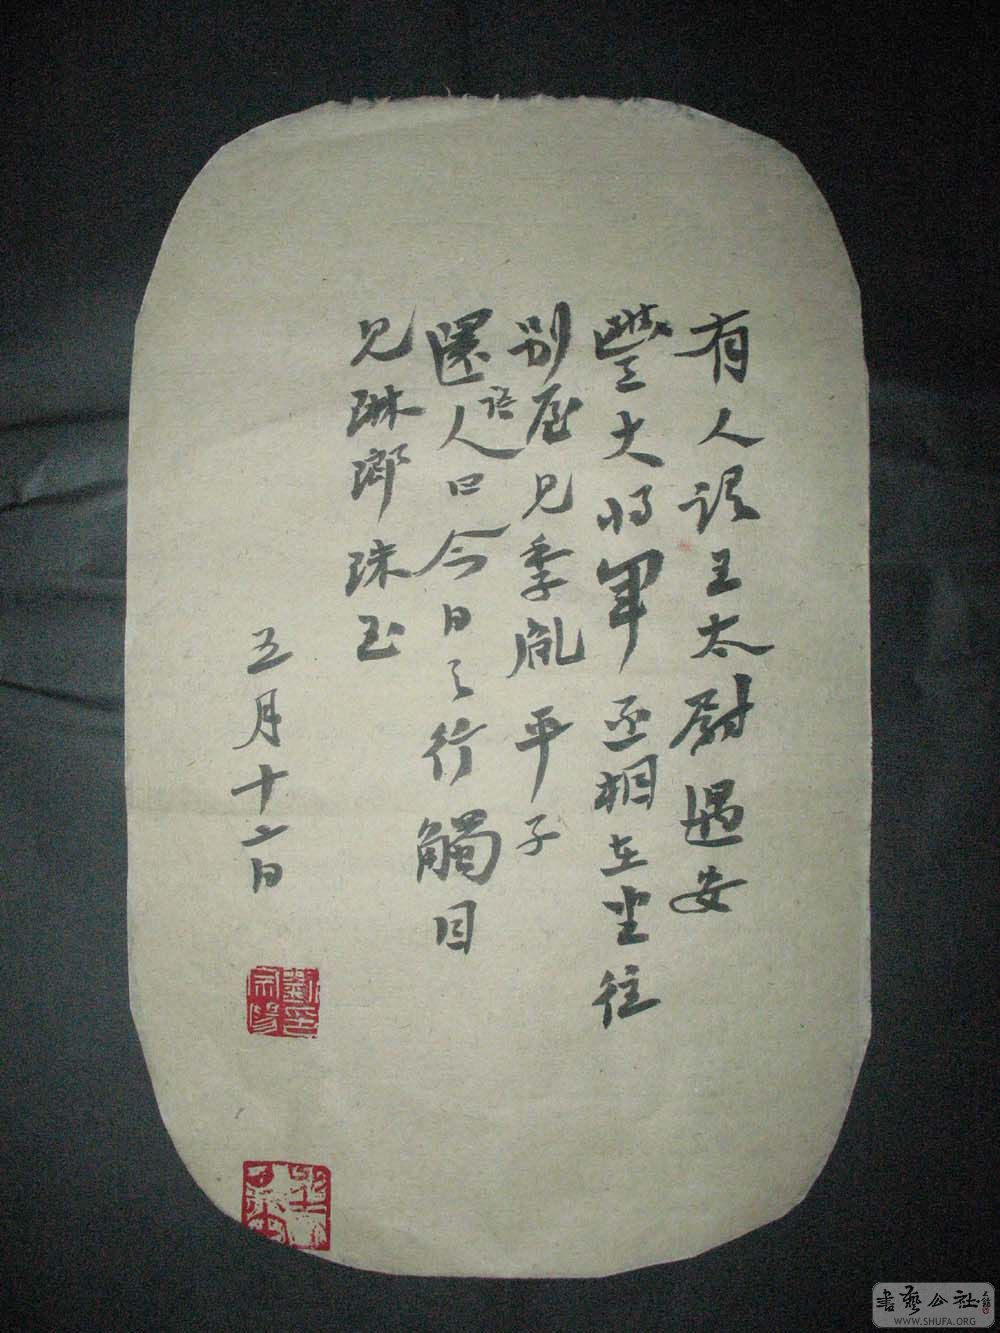 有人詣王太尉遇安
豐大將軍丞相在坐往
別屋見季胤平子
還語人曰今日之行觸目
見琳瑯珠玉
五月十六日
書藝公社
WWW.SHUFA.ORG